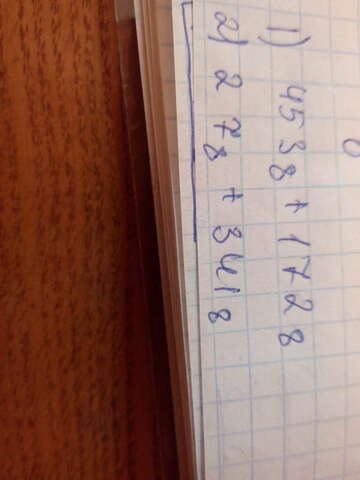 1) 453₈ + 172₈
2) 27₈ + 341₈